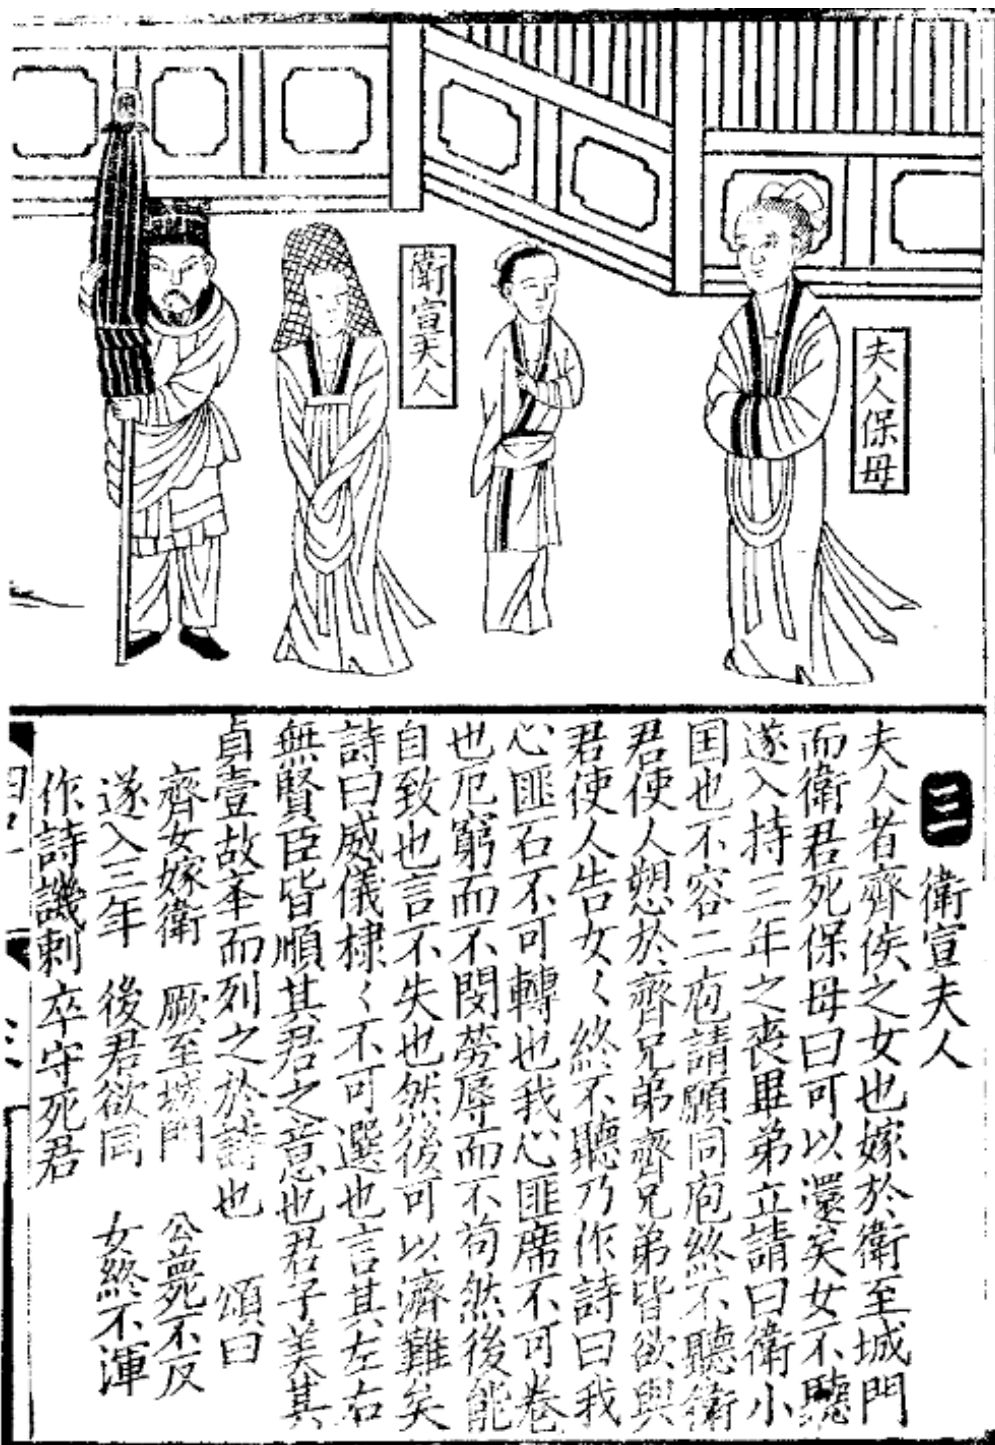 衛宣夫人
夫人保母
三 衛宣夫人
夫人者齊侯之女也嫁於衛至城門
而衛君死保母曰可以還矣女不聽
遂入持三年之喪畢弟立請曰衛小
国也不容二庖請願同庖終不聽衛
君使人愬於齊兄弟齊兄弟皆欲與
君使人告女〱終不聽乃作詩曰我
心匪石不可轉也我心匪席不可卷
也厄窮而不閔勞辱而不苟然後能
自致也言不失也然後可以濟難矣
詩曰威儀棣〱不可選也言其左右
無賢臣皆順其君之意也君子美其
貞壹故羍而列之於詩也 頌曰
齊女嫁衛 厥至城門 公薨不反
遂入三年 後君欲同 女終不渾
作詩譏刺 卒守死君